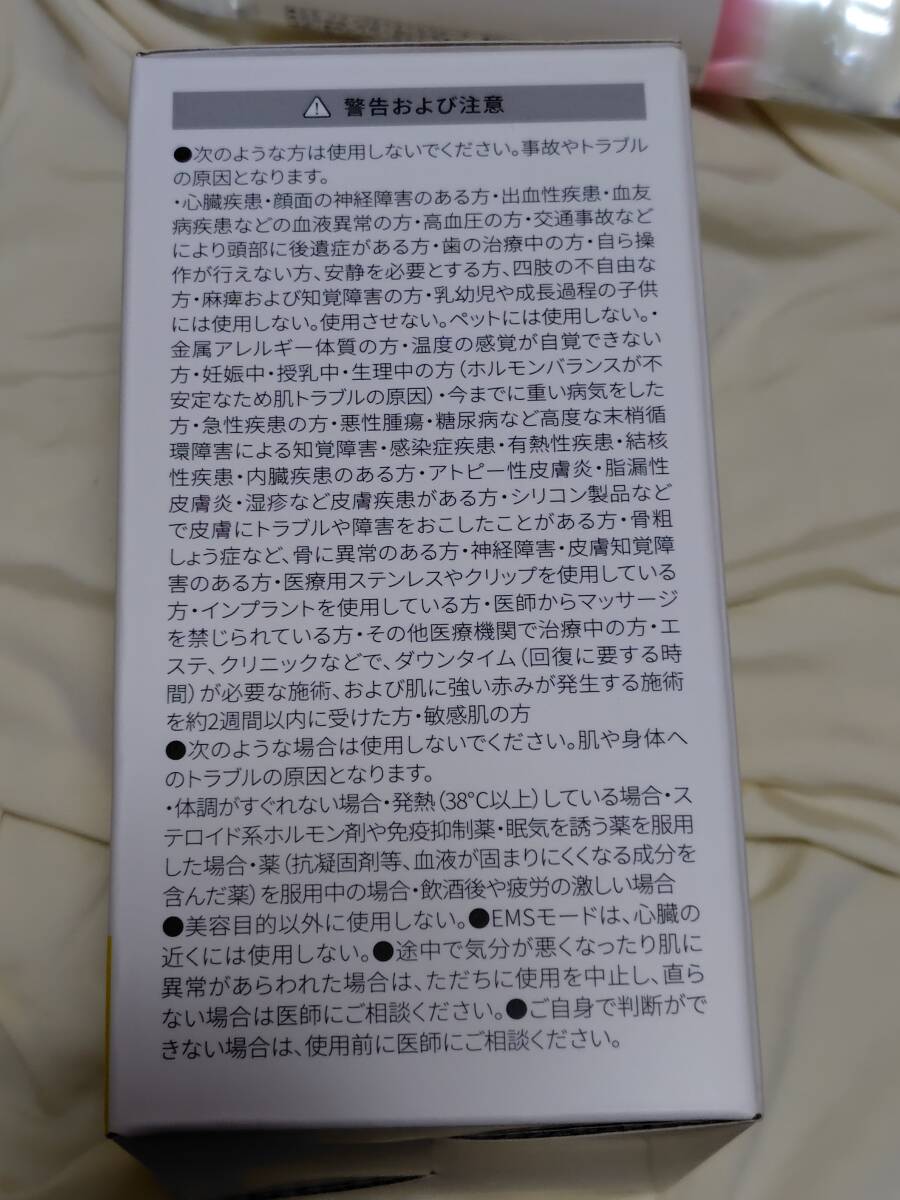 ⚠ 警告および注意
●次のような方は使用しないでください。事故やトラブル
の原因となります。
・心臓疾患・顔面の神経障害のある方・出血性疾患・血友
病疾患などの血液異常の方・高血圧の方・交通事故など
により頭部に後遺症がある方・歯の治療中の方・自ら操
作が行えない方、安静を必要とする方、四肢の不自由な
方・麻痺および知覚障害の方・乳幼児や成長過程の子供
には使用しない。使用させない。ペットには使用しない。・
金属アレルギー体質の方・温度の感覚が自覚できない
方・妊娠中・授乳中・生理中の方（ホルモンバランスが不
安定なため肌トラブルの原因）・今までに重い病気をした
方・急性疾患の方・悪性腫瘍・糖尿病など高度な末梢循
環障害による知覚障害・感染症疾患・有熱性疾患・結核
性疾患・内臓疾患のある方・アトピー性皮膚炎・脂漏性
皮膚炎・湿疹など皮膚疾患がある方・シリコン製品など
で皮膚にトラブルや障害をおこしたことがある方・骨粗
しょう症など、骨に異常のある方・神経障害・皮膚知覚障
害のある方・医療用ステンレスやクリップを使用している
方・インプラントを使用している方・医師からマッサージ
を禁じられている方・その他医療機関で治療中の方・エ
ステ、クリニックなどで、ダウンタイム（回復に要する時
間）が必要な施術、および肌に強い赤みが発生する施術
を約2週間以内に受けた方・敏感肌の方
●次のような場合は使用しないでください。肌や身体へ
のトラブルの原因となります。
・体調がすぐれない場合・発熱（38℃以上）している場合・ス
テロイド系ホルモン剤や免疫抑制薬・眠気を誘う薬を服用
した場合・薬（抗凝固剤等、血液が固まりにくくなる成分を
含んだ薬）を服用中の場合・飲酒後や疲労の激しい場合
●美容目的以外に使用しない。●EMSモードは、心臓の
近くには使用しない。●途中で気分が悪くなったり肌に
異常があらわれた場合は、ただちに使用を中止し、直ら
ない場合は医師にご相談ください。●ご自身で判断がで
きない場合は、使用前に医師にご相談ください。